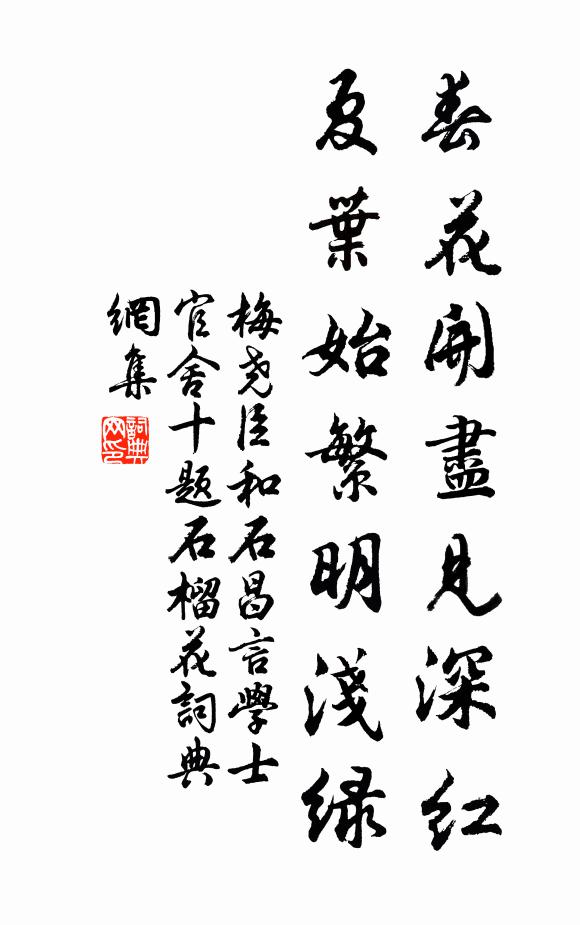 春花開盡見深红
夏葉始繁明淺緑
梅尧臣和石昌言學士
官舍十题石榴花詞典
網集
詞典網印